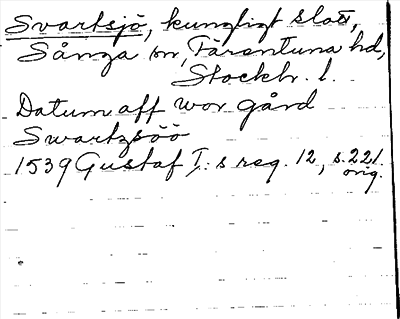 Svartsjö, kungligt slott,
Sånga sn, Färentuna hd,
Stockh. l.
Datum aff wor gård
Swartzsöö
1539 Gustaf I:s reg. 12, s. 221.
orig.